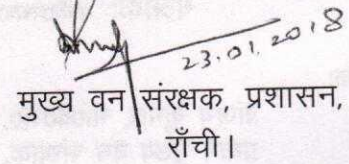 23.01.2018
मुख्य वन संरक्षक, प्रशासन,
राँची।